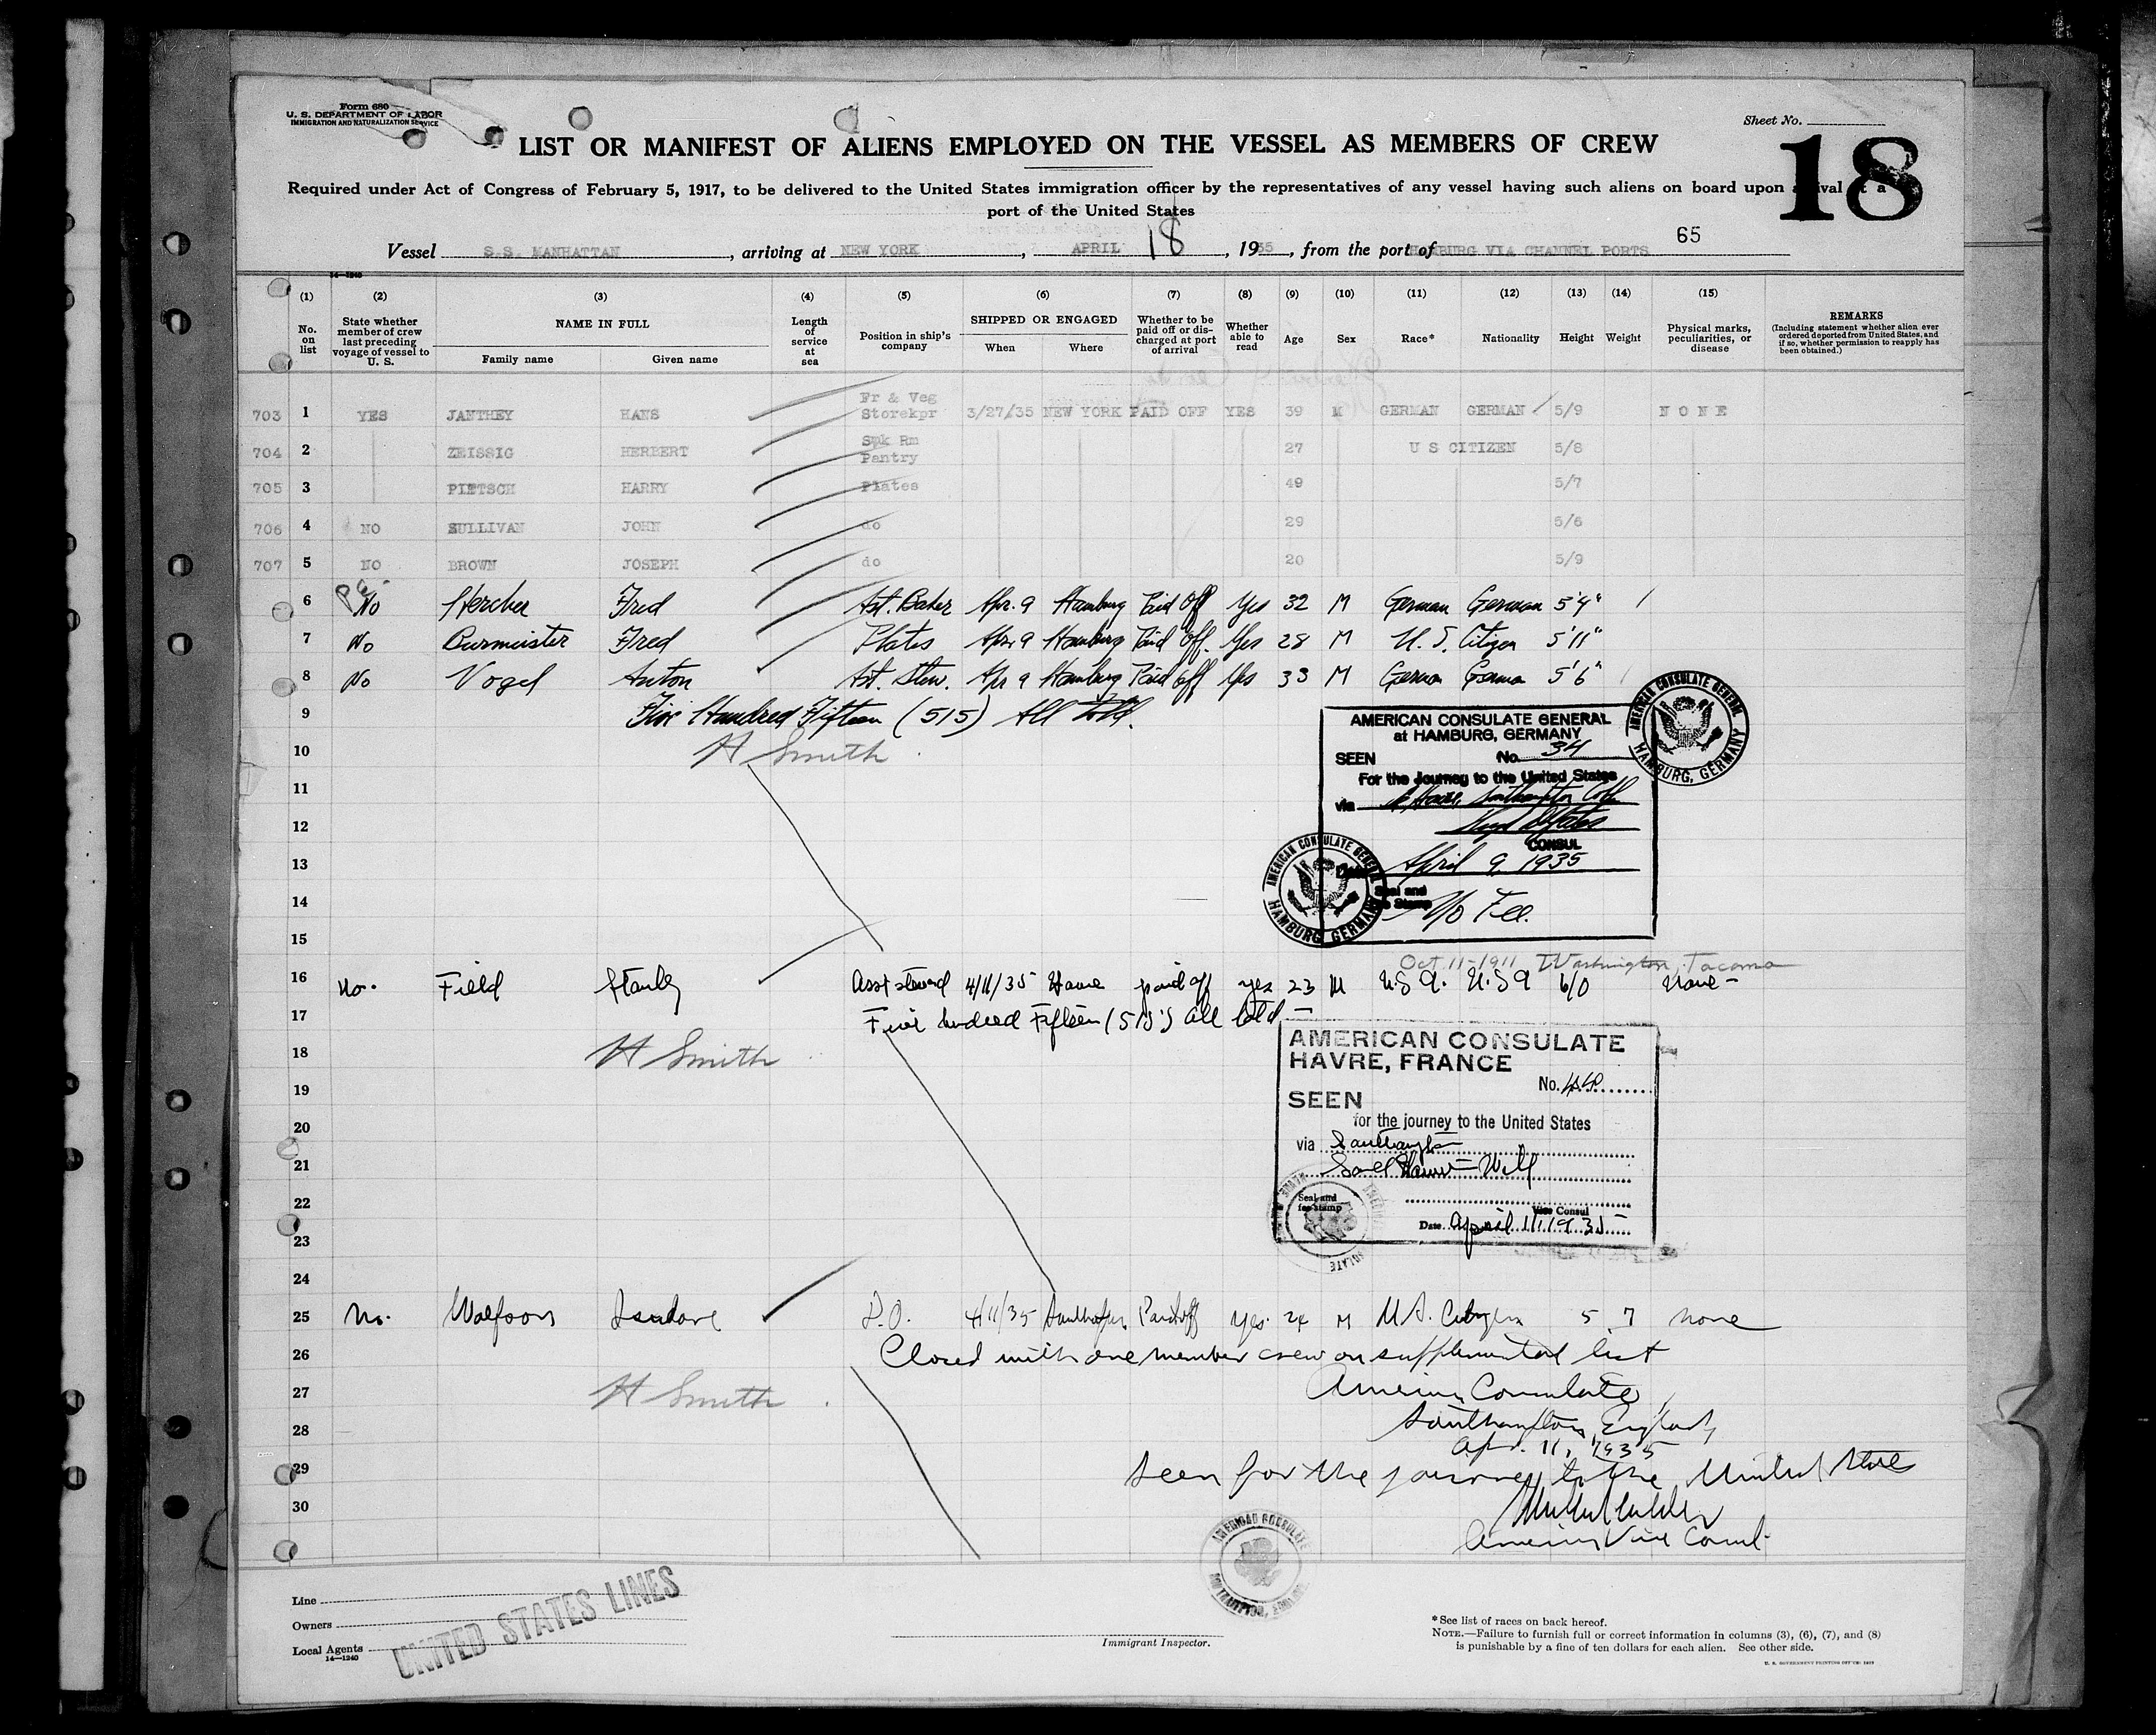 Form 680
U. S. DEPARTMENT OF LABOR
IMMIGRATION AND NATURALIZATION SERVICE
Sheet No.
18
LIST OR MANIFEST OF ALIENS EMPLOYED ON THE VESSEL AS MEMBERS OF CREW
Required under Act of Congress of February 5, 1917, to be delivered to the United States immigration officer by the representatives of any vessel having such aliens on board upon arrival at a
port of the United States
65
Vessel S.S. MANHATTAN, arriving at NEW YORK, APRIL 18, 1935, from the port of HAMBURG VIA CHANNEL PORTS
14—1240
(1) (2) (3) (4) (5) (6) (7) (8) (9) (10) (11) (12) (13) (14) (15)
No. on list
State whether member of crew last preceding voyage of vessel to U. S.
NAME IN FULL
Family name Given name
Length of service at sea
Position in ship's company
SHIPPED OR ENGAGED
When Where
Whether to be paid off or discharged at port of arrival
Whether able to read
Age
Sex
Race*
Nationality
Height
Weight
Physical marks, peculiarities, or disease
REMARKS
(Including statement whether alien ever ordered deported from United States, and if so, whether permission to reapply has been obtained.)
703 1 YES JANTHEY HANS Fr & Veg Storekpr 3/27/35 NEW YORK PAID OFF YES 39 M GERMAN GERMAN 5/9 NONE
704 2 ZEISSIG HERBERT Smk Rm Pantry 27 U S CITIZEN 5/8
705 3 PIETSCH HARRY Plates 49 5/7
706 4 NO SULLIVAN JOHN do 29 5/6
707 5 NO BROWN JOSEPH do 20 5/9
6 No Hercher Fred Ast. Baker Apr. 9 Hamburg Paid Off Yes 32 M German German 5'4"
7 No Burmeister Fred Plates Apr. 9 Hamburg Paid Off. Yes 28 M U. S. Citizen 5'11"
8 No Vogel Anton Ast. Stew. Apr 9 Hamburg Paid Off Yes 33 M German German 5'6"
9 Five Hundred Fifteen (515) All Told.
10 H Smith
AMERICAN CONSULATE GENERAL
at HAMBURG, GERMANY
SEEN No. 34
For the Journey to the United States
via Havre, Southampton
CONSUL
April 9, 1935
Seal and
Fee Stamp
No Fee.
AMERICAN CONSULATE GENERAL HAMBURG, GERMANY
AMERICAN CONSULATE GENERAL HAMBURG, GERMANY
11
12
13
14
15
Oct. 11-1911 Washington, Tacoma
16 No. Field Stanley Asst steward 4/11/35 Havre paid off yes 23 M U.S.A. U.S.A 6/0 None
17 Five hundred Fifteen (515) all told
18 H Smith
AMERICAN CONSULATE
HAVRE, FRANCE
No.
SEEN
for the journey to the United States
via Southampton
Seal and
fee stamp
Vice Consul
Date April 11, 1935
19
20
21
22
23
24
25 No. Wolfson Isadore P.O. 4/11/35 Southampton Paid off yes 24 M U S. Citizen 5 7 none
26 Closed with one member crew on supplemental list
27 H Smith
American Consulate,
28 Southampton, England,
Apr. 11, 1935
29 Seen for the journey to the United States
30
American Vice Consul
AMERICAN CONSULATE SOUTHAMPTON, ENGLAND
Line
Owners
Local Agents
14—1240
UNITED STATES LINES
Immigrant Inspector.
*See list of races on back hereof.
NOTE.—Failure to furnish full or correct information in columns (3), (6), (7), and (8)
is punishable by a fine of ten dollars for each alien. See other side.